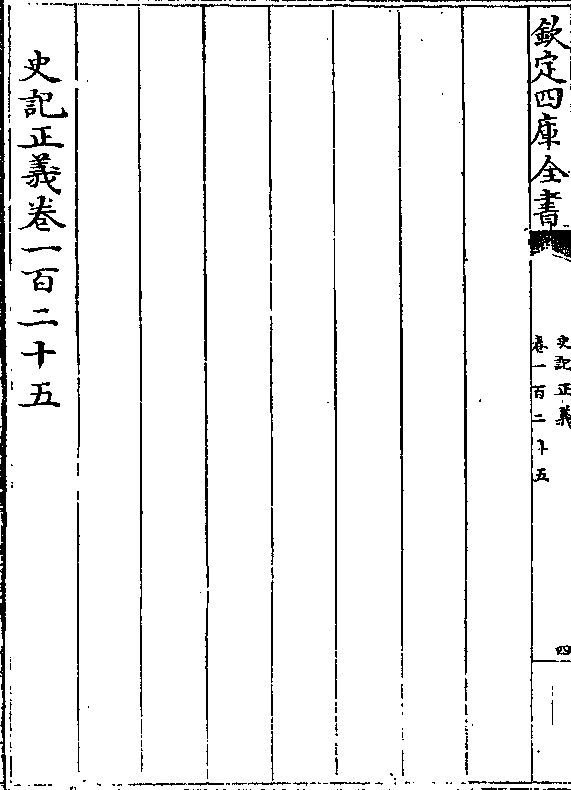 欽定四庫全書
史記正義
卷一百二十五
四
史記正義卷一百二十五